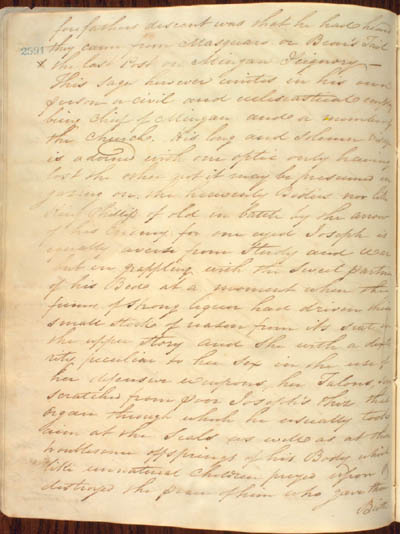 forefathers descent was that he had heard
they came from Masquaro or Bear's Tail
2591
x the last Post on Mingan Seignory —
This sage however unites in his own
person a civil and ecclesiastical
being Chief of Mingan and a member of
the Church. His long and solemn visage
is adorned with one optic only having
lost the other not it may be presumed in
gazing on the heavenly Bodies nor like
King Phillip of old in battle by the arrow
of his Enemy for one eyed Joseph is
equally averse from Study and War
but in grappling with the sweet partner
of his Bed at a moment when the
fumes of strong liquor had driven their
small stock of reason from its seat in
the upper Story and She with a
peculiar to her sex in the use of
her offensive weapons, her Talons,
scratched from poor Joseph's that
organ through which he usually took
aim at the Seals as well as at those
troublesome offsprings of his Body which
like unnatural children preyed upon &
destroyed the peace of him who gave them
Birth